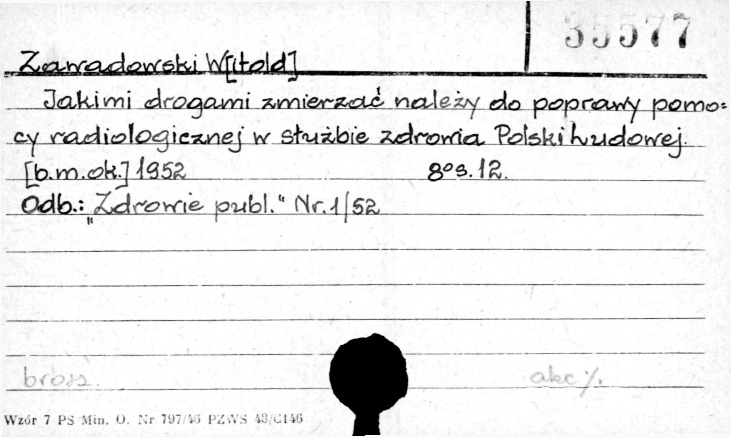 35577
Zawadowski W[itold]
Jakimi drogami zmierzać należy do poprawy pomo=
cy radiologicznej w służbie zdrowia Polski Ludowej.
[b.m.ok.] 1952 8° s. 12.
Odb.: „Zdrowie publ." Nr. 1/52
brosz. akc %.
Wzór 7 PS Min. O. Nr 797/46 PZWS 43/C146